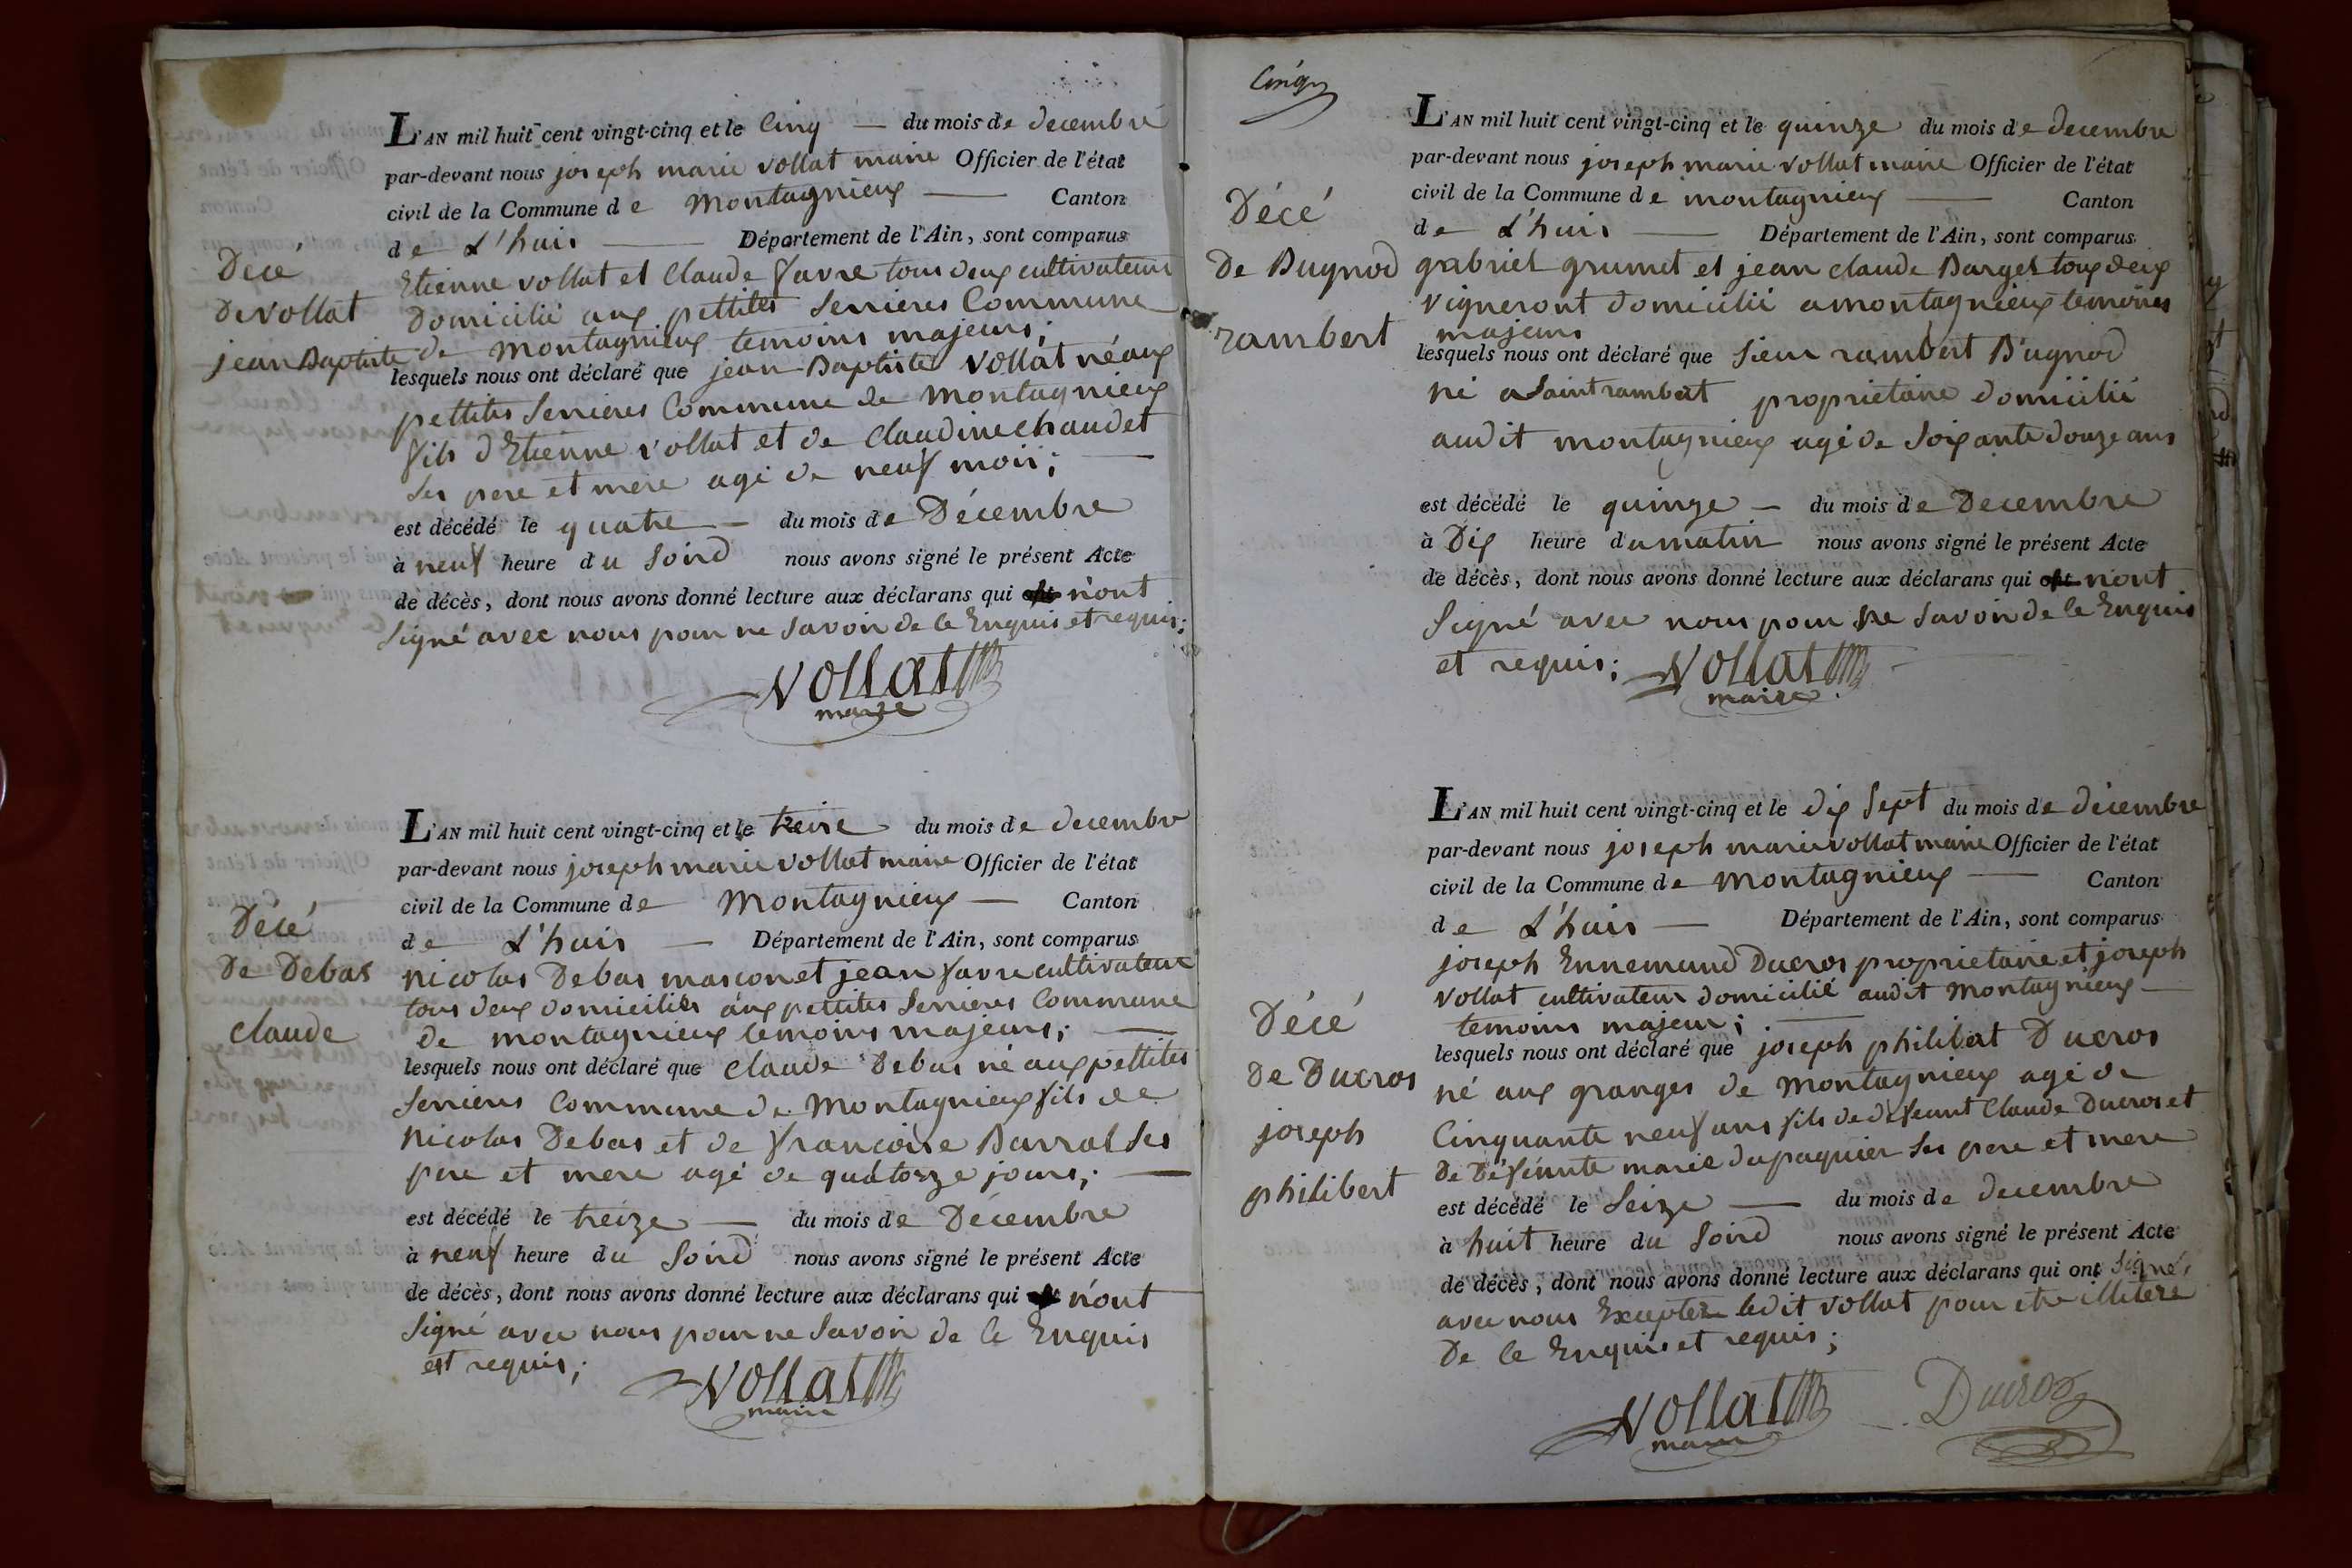 L'AN mil huit cent vingt-cinq et le Cinq — du mois de decembre
par-devant nous joseph marie vollat maire Officier de l'état
civil de la Commune de Montagnieux — Canton
de L'huis — Département de l'Ain, sont comparus
Etienne vollat et Claude favre tous deux cultivateurs
Domicilié aux pettites Serrieres Commune
de Montagnieux temoins majeurs;
lesquels nous ont déclaré que jean Baptiste vollat né aux
pettites Serrieres Commune de Montagnieux
fils d'Etienne vollat et de Claudine chaudet
Ses pere et mere agé de neuf mois; —
est décédé le quatre — du mois de Décembre
à neuf heure du Soird nous avons signé le présent Acte
de décès, dont nous avons donné lecture aux déclarans qui ont n'ont
Signé avec nous pour ne Savoir de ce Enquis et requis;
Vollat
maire
Décé
De vollat
jean Baptiste
L'AN mil huit cent vingt-cinq et le treize du mois de decembre
par-devant nous joseph marie vollat maire Officier de l'état
civil de la Commune de Montagnieux — Canton
de L'huis — Département de l'Ain, sont comparus
nicolas Debas mascon et jean favre cultivateur
tous deux domiciliés aux pettites Serrieres Commune
de montagnieux temoins majeurs; —
lesquels nous ont déclaré que Claude Debas né aux pettites
Serrieres Commune de Montagnieux fils de
Nicolas Debas et de françoise Barral Ses
pere et mere agé de quatorze jours; —
est décédé le treize — du mois de Décembre
à neuf heure du Soird nous avons signé le présent Acte
de décès, dont nous avons donné lecture aux déclarans qui n'ont
Signé avec nous pour ne Savoir de ce Enquis
et requis;
Vollat
maire
Décé
De Debas
Claude
Cinq
L'AN mil huit cent vingt-cinq et le quinze du mois de decembre
par-devant nous joseph marie vollat maire Officier de l'état
civil de la Commune de montagnieux — Canton
de L'huis — Département de l'Ain, sont comparus
gabriel grumet et jean claude Barget toux deux
vigneront domicilié a montagnieux temoines
majeurs
lesquels nous ont déclaré que Sieur rambert Bugnod
né a Saint rambert proprietaire domicilié
audit montagnieux agé de Soixante douze ans
est décédé le quinze — du mois de Decembre
à Dix heure du matin nous avons signé le présent Acte
de décès, dont nous avons donné lecture aux déclarans qui ont n'ont
Signé avec nous pour ne Savoir de ce Enquis
et requis; Vollat
maire
Décé
De Bugnod
rambert
L'AN mil huit cent vingt-cinq et le dix Sept du mois de décembre
par-devant nous joseph marie vollat maire Officier de l'état
civil de la Commune de Montagnieux — Canton
de L'huis — Département de l'Ain, sont comparus
joseph Ennemund Ducros proprietaire et joseph
vollat cultivateur domicilié audit Montagnieux —
temoins majeur; —
lesquels nous ont déclaré que joseph philibert Ducros
né aux granges de Montagnieux agé de
Cinquante neuf ans fils de defeunt Claude Ducros et
De Défeunte marie dupaquier Ses pere et mere
est décédé le Seize — du mois de decembre
à huit heure du Soird nous avons signé le présent Acte
de décès, dont nous avons donné lecture aux déclarans qui ont Signé,
avec nous Exceptez ledit vollat pour etre illiteré
De ce Enquis et requis;
Vollat
maire
Ducros
Décé
De Ducros
joseph
philibert